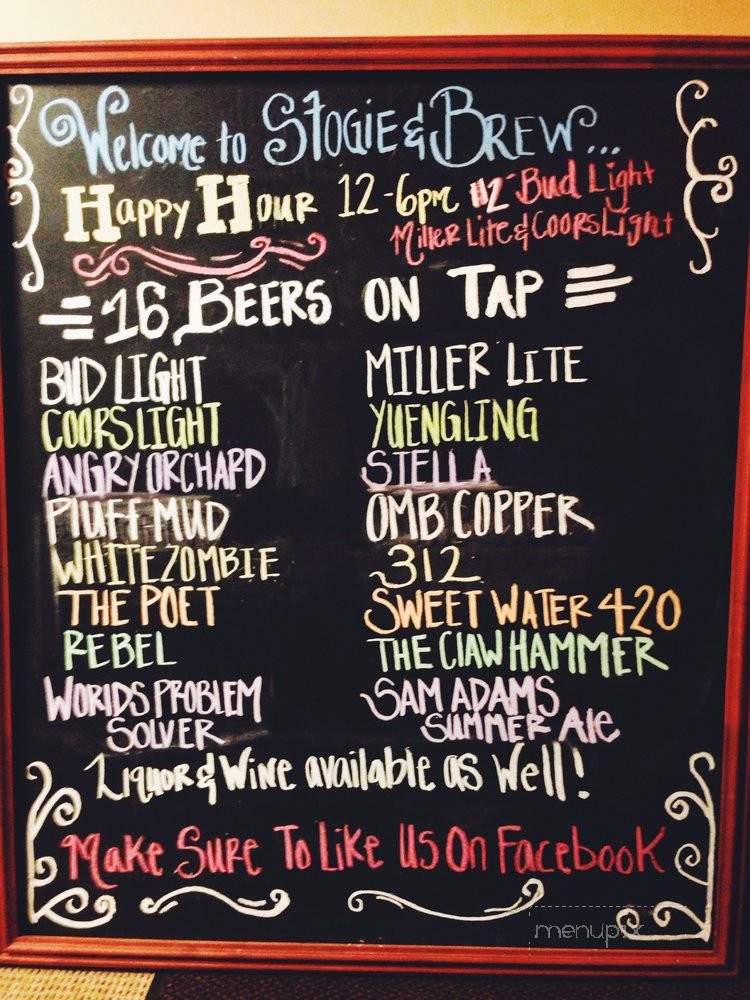 Welcome to Stogie & Brew...
Happy Hour 12-6pm $2 Bud Light
Miller Lite & Coors Light
16 Beers on Tap
BUD LIGHT
COORS LIGHT
ANGRY ORCHARD
PLUFF MUD
WHITE ZOMBIE
THE POET
REBEL
WORLDS PROBLEM
SOLVER
MILLER LITE
YUENGLING
STELLA
OMB COPPER
312
SWEET WATER 420
THE CLAW HAMMER
SAM ADAMS
SUMMER Ale
Liquor & Wine available as well!
Make Sure To Like Us On Facebook
menupix